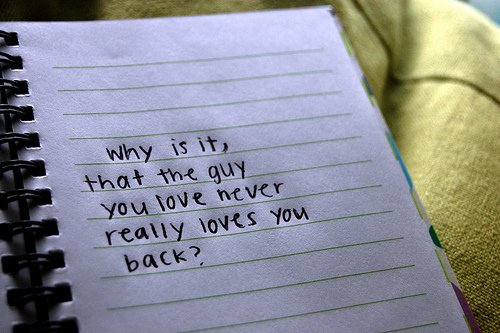 why is it,
that the guy
you love never
really loves you
back?